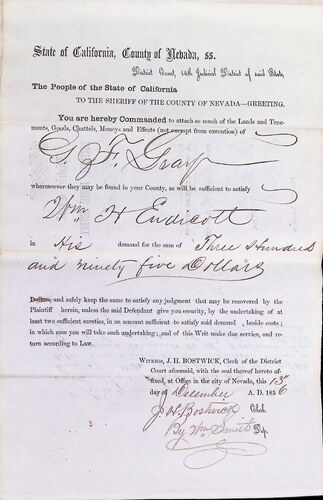 State of California, County of Nevada, ss.
District Court, 14th Judicial District of said State,
The People of the State of California
TO THE SHERIFF OF THE COUNTY OF NEVADA—GREETING.
You are hereby Commanded to attach so much of the Lands and Tene-
ments, Goods, Chattels, Moneys and Effects (not exempt from execution) of
G. F. Gray
wheresoever they may be found in your County, as will be sufficient to satisfy
Wm H Endicott
in His demand for the sum of Three Hundred
and ninety five Dollars
Dollars, and safely keep the same to satisfy any judgment that may be recovered by the
Plaintiff herein, unless the said Defendant give you security, by the undertaking of at
least two sufficient sureties, in an amount sufficient to satisfy said demand, besides costs;
in which case you will take such undertaking; and of this Writ make due service, and re-
turn according to Law.
WITNESS, J. H. BOSTWICK, Clerk of the District
Court aforesaid, with the seal thereof hereto af-
fixed, at Office in the city of Nevada, this 13th
day of December A. D. 1856
J. H. Bostwick Clerk.
By Wm Smith Dep.